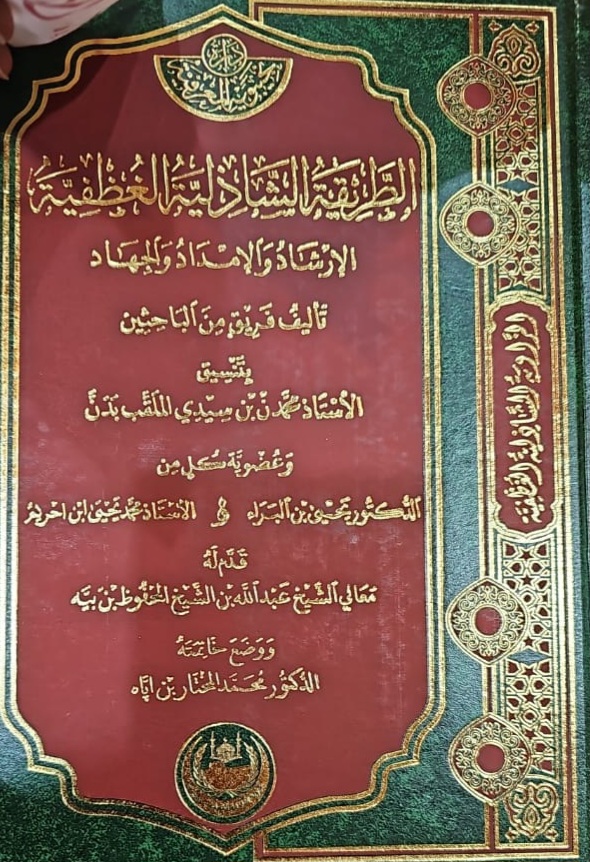 الطَّرِيقَةُ الشَّاذِلِيَّةُ الغُظْفِيَّةُ
الإِرْشَادُ وَالإِمْدَادُ وَالجِهَادُ
تَأْلِيفُ فَرِيقٍ مِنَ البَاحِثِينَ
بِتَنْسِيقِ
الأُسْتَاذ مُحَمَّدٌ بْنُ سِيدِي المُلَقَّب بَدَنَّ
وَعُضْوِيَّة كُلٍّ مِن
الدُّكتُور يَحْيَى بْن البَرَاء و الأُسْتَاذ مُحَمَّد يَحْيَى ابن احريمُ
قَدَّمَ لَهُ
مَعَالِي الشَّيْخ عَبْدُ اللَّه بْن الشَّيْخ المَحْفُوظ بْن بَيَّه
وَوَضَعَ خَاتِمَتَهُ
الدُّكْتُور مُحَمَّد المُخْتَار بْن ابَّاه
الزاوية الشاذلية الغظفية